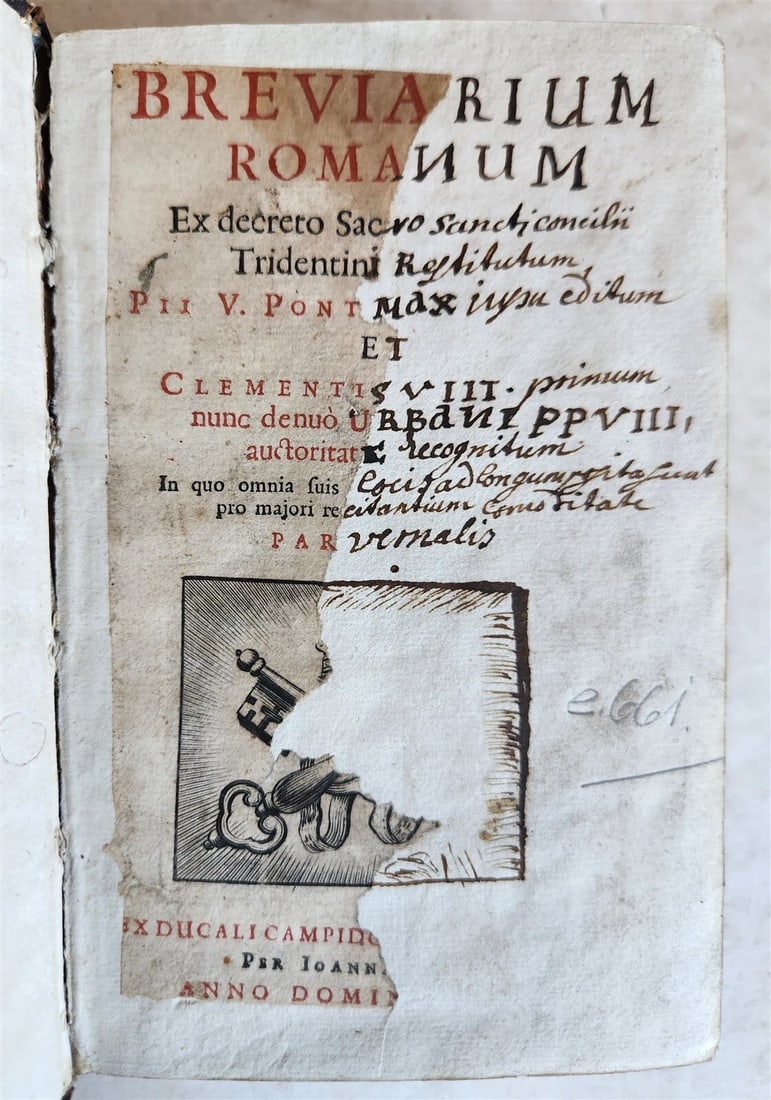 BREVIARIUM
ROMANUM
Ex decreto Sacro sancti concilii
Tridentini Restitutum,
PII V. PONT MAX jussu editum
ET
CLEMENTIS VIII. primum,
nunc denuò URBANI PP VIII,
auctoritate recognitum
In quo omnia suis locis ad longum posita sunt
pro majori recitantium comoditate
PAR vernalis
e.661.
EX DUCALI CAMPIDO
PER IOANN
ANNO DOMIN